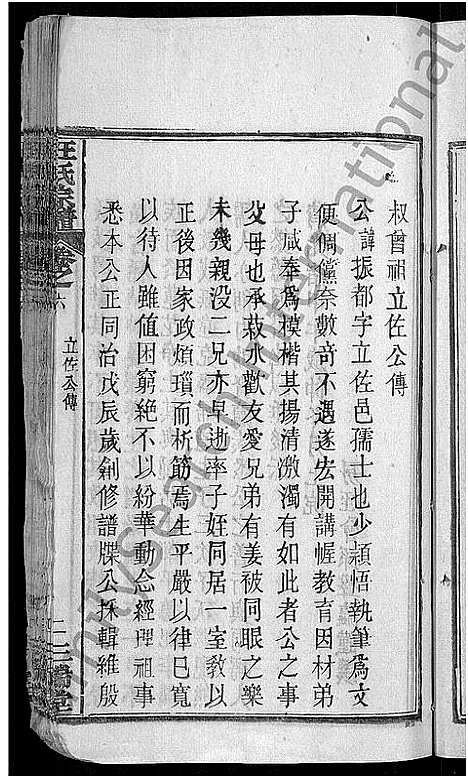 叔曾祖立佐公傳
公諱振都字立佐邑孺士也少穎悟執筆爲文
便倜儻奈數奇不遇遂宏開講幄教育因材弟
子咸奉爲模楷其揚清激濁有如此者公之事
父母也承菽水歡友愛兄弟有姜被同眠之樂
未幾親没二兄亦早逝率子姪同居一室敎以
正後因家政煩瑣而析筯焉生平嚴以律巳寬
以待人雖值困窮絶不以紛華動念經理祖事
悉本公正同治戊辰歲創修譜牒公採輯維殷
汪氏宗譜
卷之六
立佐公傳
二